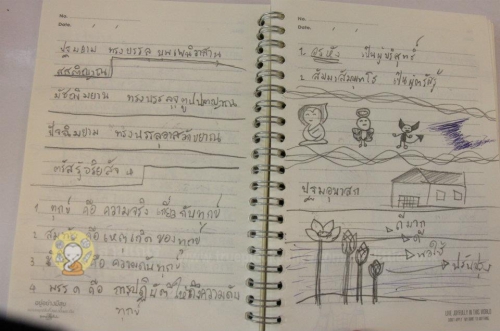 No.
Date.
ปฐมยาม ทรงบรรลุ บุพเพนิวาสานุ
สสติญาณ
มัชฌิมยาม ทรงบรรลุจุตูปปาตญาณ
ปัจฉิมยาม ทรงบรรลุอาสวักขยญาณ
ตรัสรู้อริยสัจ ๔
1 ทุกข์ คือ ความจริง
2 คือเหตุเกิดของทุกข์
3 คือ ความดับทุกข์
4 มรรค คือ การปฏิบัติให้ถึงความดับ
ทุกข์
No.
Date.
1. อรหัง เป็นผู้บริสุทธิ์
2. สัมมาสัมพุทโธ เป็นผู้ตรัสรู้
ปฐมอุบาสก
ดีมาก
ดี
พอใช้
ปรับปรุง